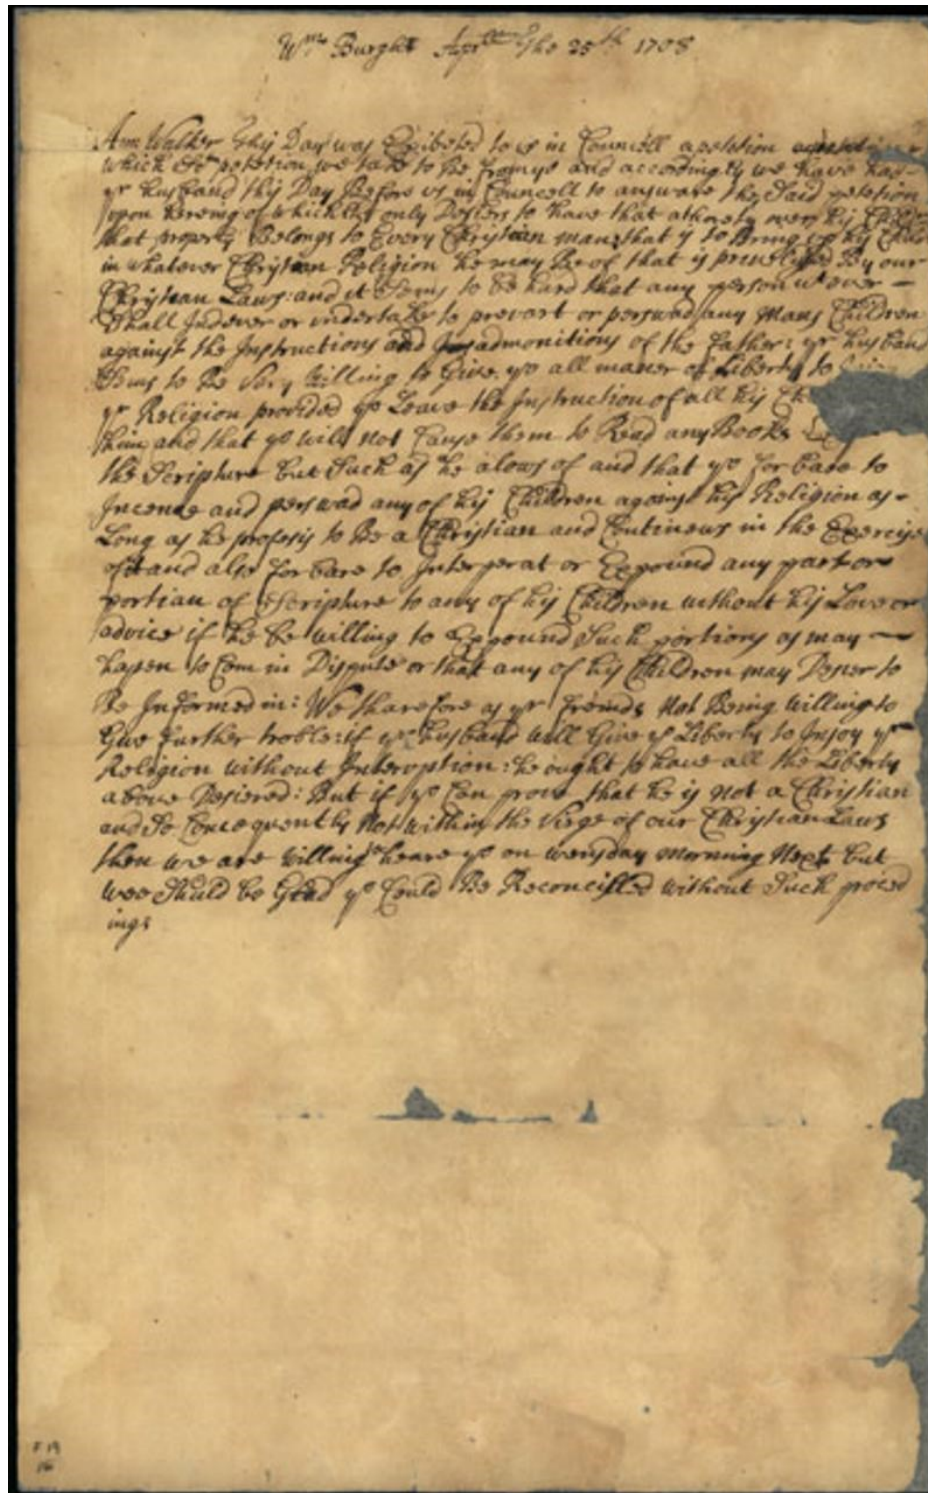 Wms Burght Aprill The 25th 1708
Ann Walker This Day was Exibeted to us in Councell a petetion
which Sd petetion we take to be from ye and accordingly we have had
yr husband this Day Before us in Councell to answare the Said petetion
upon hereing of which he only Desiers to have that athorety over his
that property Belongs to Every Christian man that is to Bring up his
in whatever Christian Religion he may Be of that is priveliged By our
Christian Laws: and it Sems to be hard that any person wt ever
Shall Indever or undertake to prevart or perswad any Mans Children
against the Instructions and admonitions of the father: yr husband
Sems to Be Very Willing to Give yo all maner of Liberty to
yr Religion provided yo Leave the Instruction of all his
him and that yo will not Cause them to Read any Books
the Scripture but Such as he alows of and that yo for bare to
Incence and perswad any of his Children against his Religion as
Long as he profesis to Be a Christian and Continews in the Exercise
of it and also for bare to Interperat or Expound any part or
portian of Scripture to any of his Children without his Love or
advice if he be willing to Expound Such portions as may
hapen to Com in Dispute or that any of his Children may Desier to
Be Informed in: We tharefore as yr freinds Not Being willing to
Give further troble: if yr husband will Give yo Liberty to Injoy yr
Religion without Interoption: he ought to have all the Liberty
above Desiered: But if yo Can prove that he is not a Christian
and So Concequently Not within the Virge of our Christian Laws
then we are willing to heare yo on wensday morning Next but
wee Should be Glad yo Could Be Reconcilled without Such proced
ings
F 19